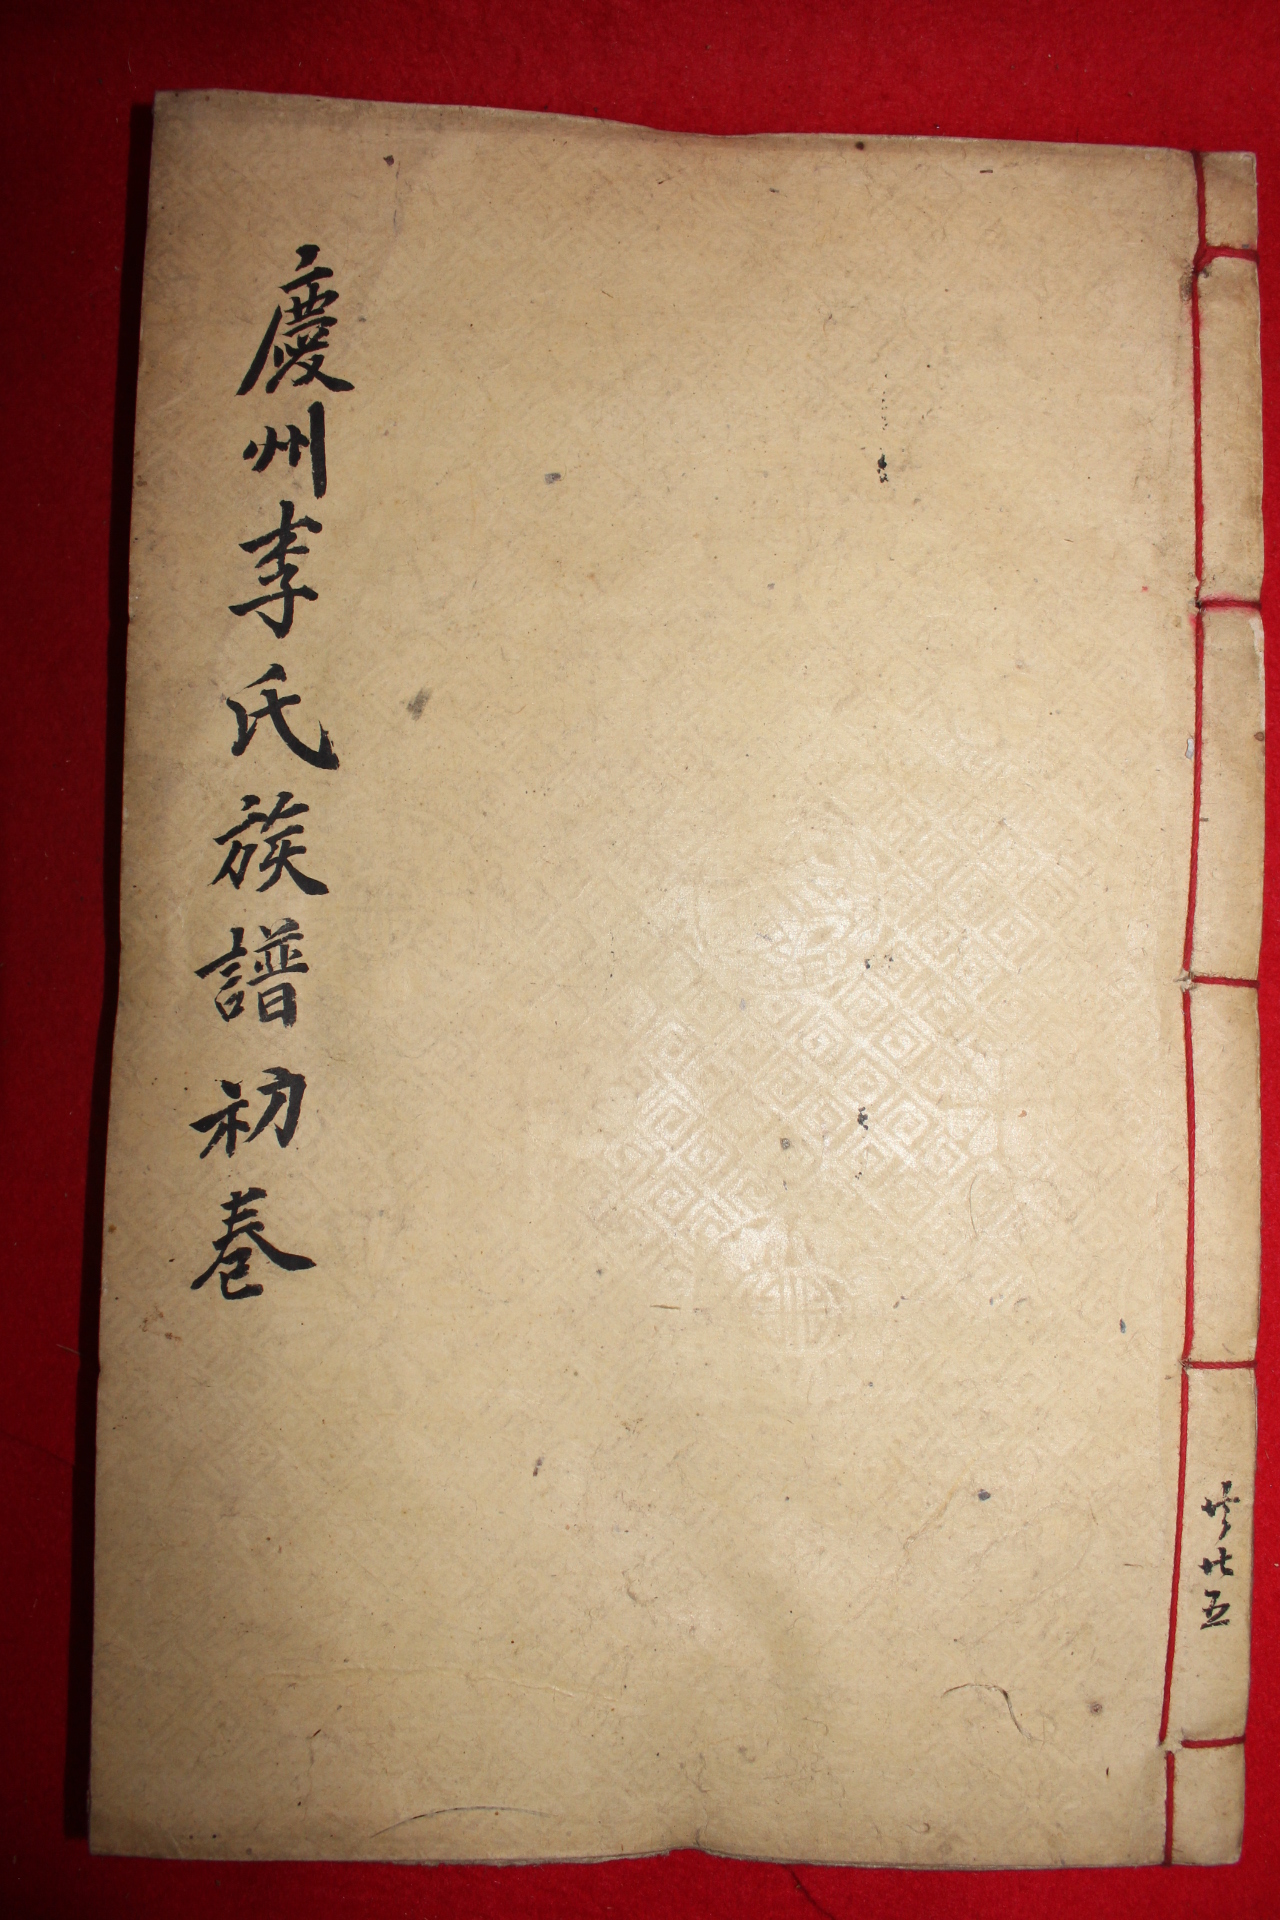 慶州李氏族譜初卷
共卄五